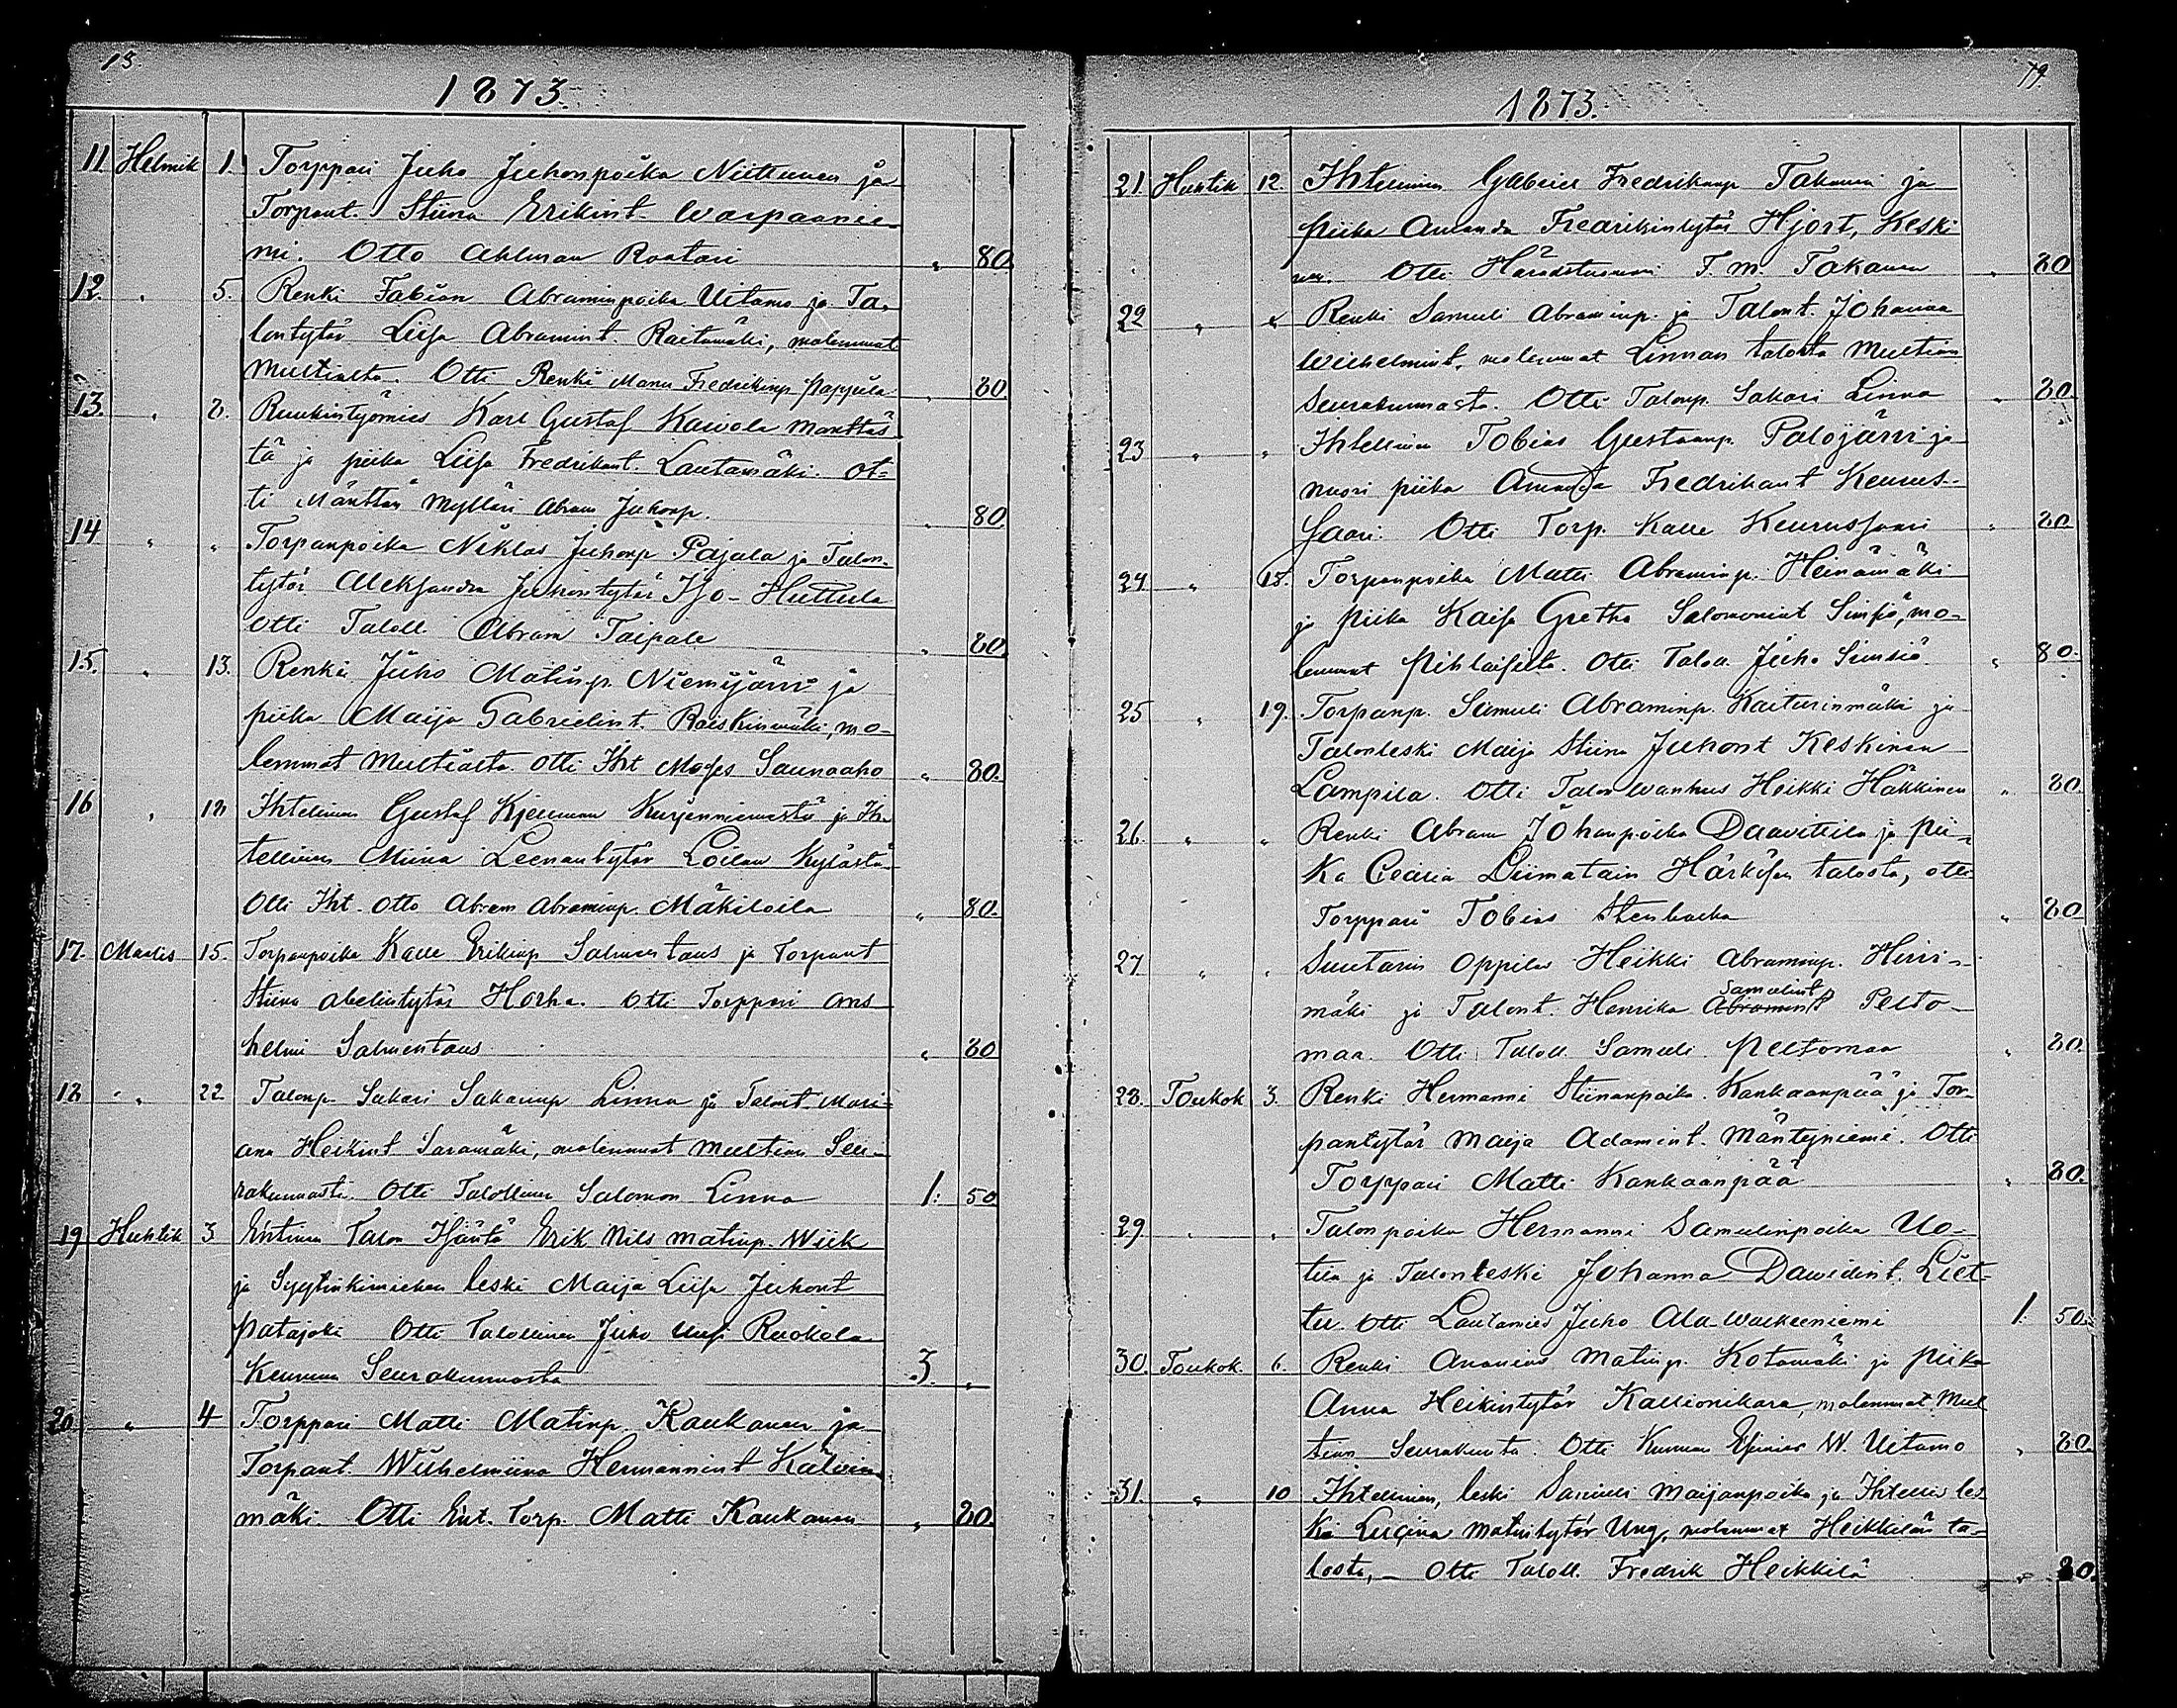 18.
1873.
11. Helmik 1. Torppari Juho Juhonpoika Niittunen ja
Torpant. Stiina Erikint. Warpaanie-
mi. Otto Ahlman Raatari „ 80.
12. „ 5. Renki Fabian Abraminpoika Uitamo ja Ta-
lontytär Liisa Abramint. Raitamäki, molemmat
Multialta. Otti Renki Manu Fredrikinp. Pappila „ 80.
13. „ 8. Ruukintyömies Karl Gustaf Kaivola Mänttäs-
tä ja piika Liisa Fredrikint. Lautamäki. Ot-
ti Mänttän Mylläri Abram Juhonp. „ 80.
14 „ „ Torpanpoika Niklas Juhonp Pajala ja Talon-
tytär Aleksandra Juhontytär Iso-Huttula
Otti Taloll. Abram Taipale „ 80.
15. „ 13. Renki Juho Matinp. Niemijärvi ja
piika Maija Gabrielint. Raiskinmäki, mo-
lemmat Multialta. Otti Iht Moses Saunaaho „ 80.
16 „ 18 Ihtellinen Gustaf Kjennunen Kurjenniemestä ja Ih-
tellinen Miina Leenantytär Loilan Kylästä
Otti Iht. Otto Abram Abraminp. Mäkiloila „ 80.
17. Maalis 15. Torpanpoika Kalle Erikinp Salmentaus ja Torpant
Stiina Abelintytär Horha. Otti Torppari Ans
helmi Salmentaus „ 80
18 „ 22 Talonp Sakari Sakarinp Linna ja Talont. Mari-
ana Heikint Saramäki, molemmat Multian Seu-
rakunnasta. Otti Talollinen Salomon Linna 1: 50
19 Huhtik 3 Entinen Talon Isäntä Erik Nils Matinp. Wiik
ja Syytinkimiehen leski Maija Liisa Juhont
Patajoki Otti Talollinen Juho Uusi Ruokola
Keuruun Seurakunnasta 3. „
20. „ 4 Torppari Matti Matinp. Kaukanen ja
Torpant. Wilhelmiina Hermannint Kälvin
mäki. Otti Ent. Torp. Matti Kaukanen „ 80.
19.
1873.
21. Huhtik 12. Ihtellinen Gabriel Fredrikinp Takanen ja
piika Amanda Fredrikintytär Hjort, Keski
nen. Otti Häradstuomari F. M. Takanen „ 80
22 „ „ Renki Samuli Abraminp. ja Talont. Johanna
Wilhelmint. molemmat Linnan talosta Multian
Seurakunnasta. Otti Talonp. Sakari Linna „ 80.
23 „ „ Ihtellinen Tobias Gustaanp. Palojärvi ja
nuori piika Amanda Fredrikint Keurus-
saari. Otti Torp. Kalle Keurussaari „ 80
24 „ 18. Torpanpoika Matti Abraminp. Heinämäki
ja piika Kaisa Gretha Salomonint Simsiö, mo-
lemmat Pihlaisilta. Otti Taloll. Juho Simsiö. „ 80.
25 „ 19. Torpanp. Samuli Abraminp. Kaiturinmäki ja
Talonleski Maija Stiina Juhont Keskinen
Lampila. Otti Talon wanhus Heikki Häkkinen „ 80.
26. „ „ Renki Abram Johanpoika Daavittila ja pii-
ka Cecilia Diimatain Härkösen talosta, otti
Torppari Tobias Stenbacka „ 80
27 „ „ Suutarin Oppilas Heikki Abraminp. Hirvi-
mäki ja Talont. Henrika Abramint Samulint Pelto-
maa. Otti Taloll. Samuli Peltomaa „ 80.
28. Toukok 3. Renki Hermanni Stiinanpoika Kankaanpää ja Tor-
pantytär Maija Adamint. Mäntyniemi. Otti
Torppari Matti Kankaanpää „ 80.
29. „ „ Talonpoika Hermanni Samulinpoika Uo-
tila ja Talonleski Johanna Dawidint. Liet-
tu. Otti Lautamies Juho Ala-Walkeeniemi 1. 50.
30. Toukok. 6. Renki Ananias Matinp. Kotamäki ja Piika
Anna Heikintytär Kallionikara, molemmat Mul
tian Seurakunta. Otti W. Uitamo „ 80.
31. „ 10 Ihtellinen, leski Samuli Maijanpoika ja Ihtellis les
ki Luciina Matintytär Ung, molemmat Heikkilän ta-
losta, - Otti Taloll. Fredrik Heikkilä „ 80.